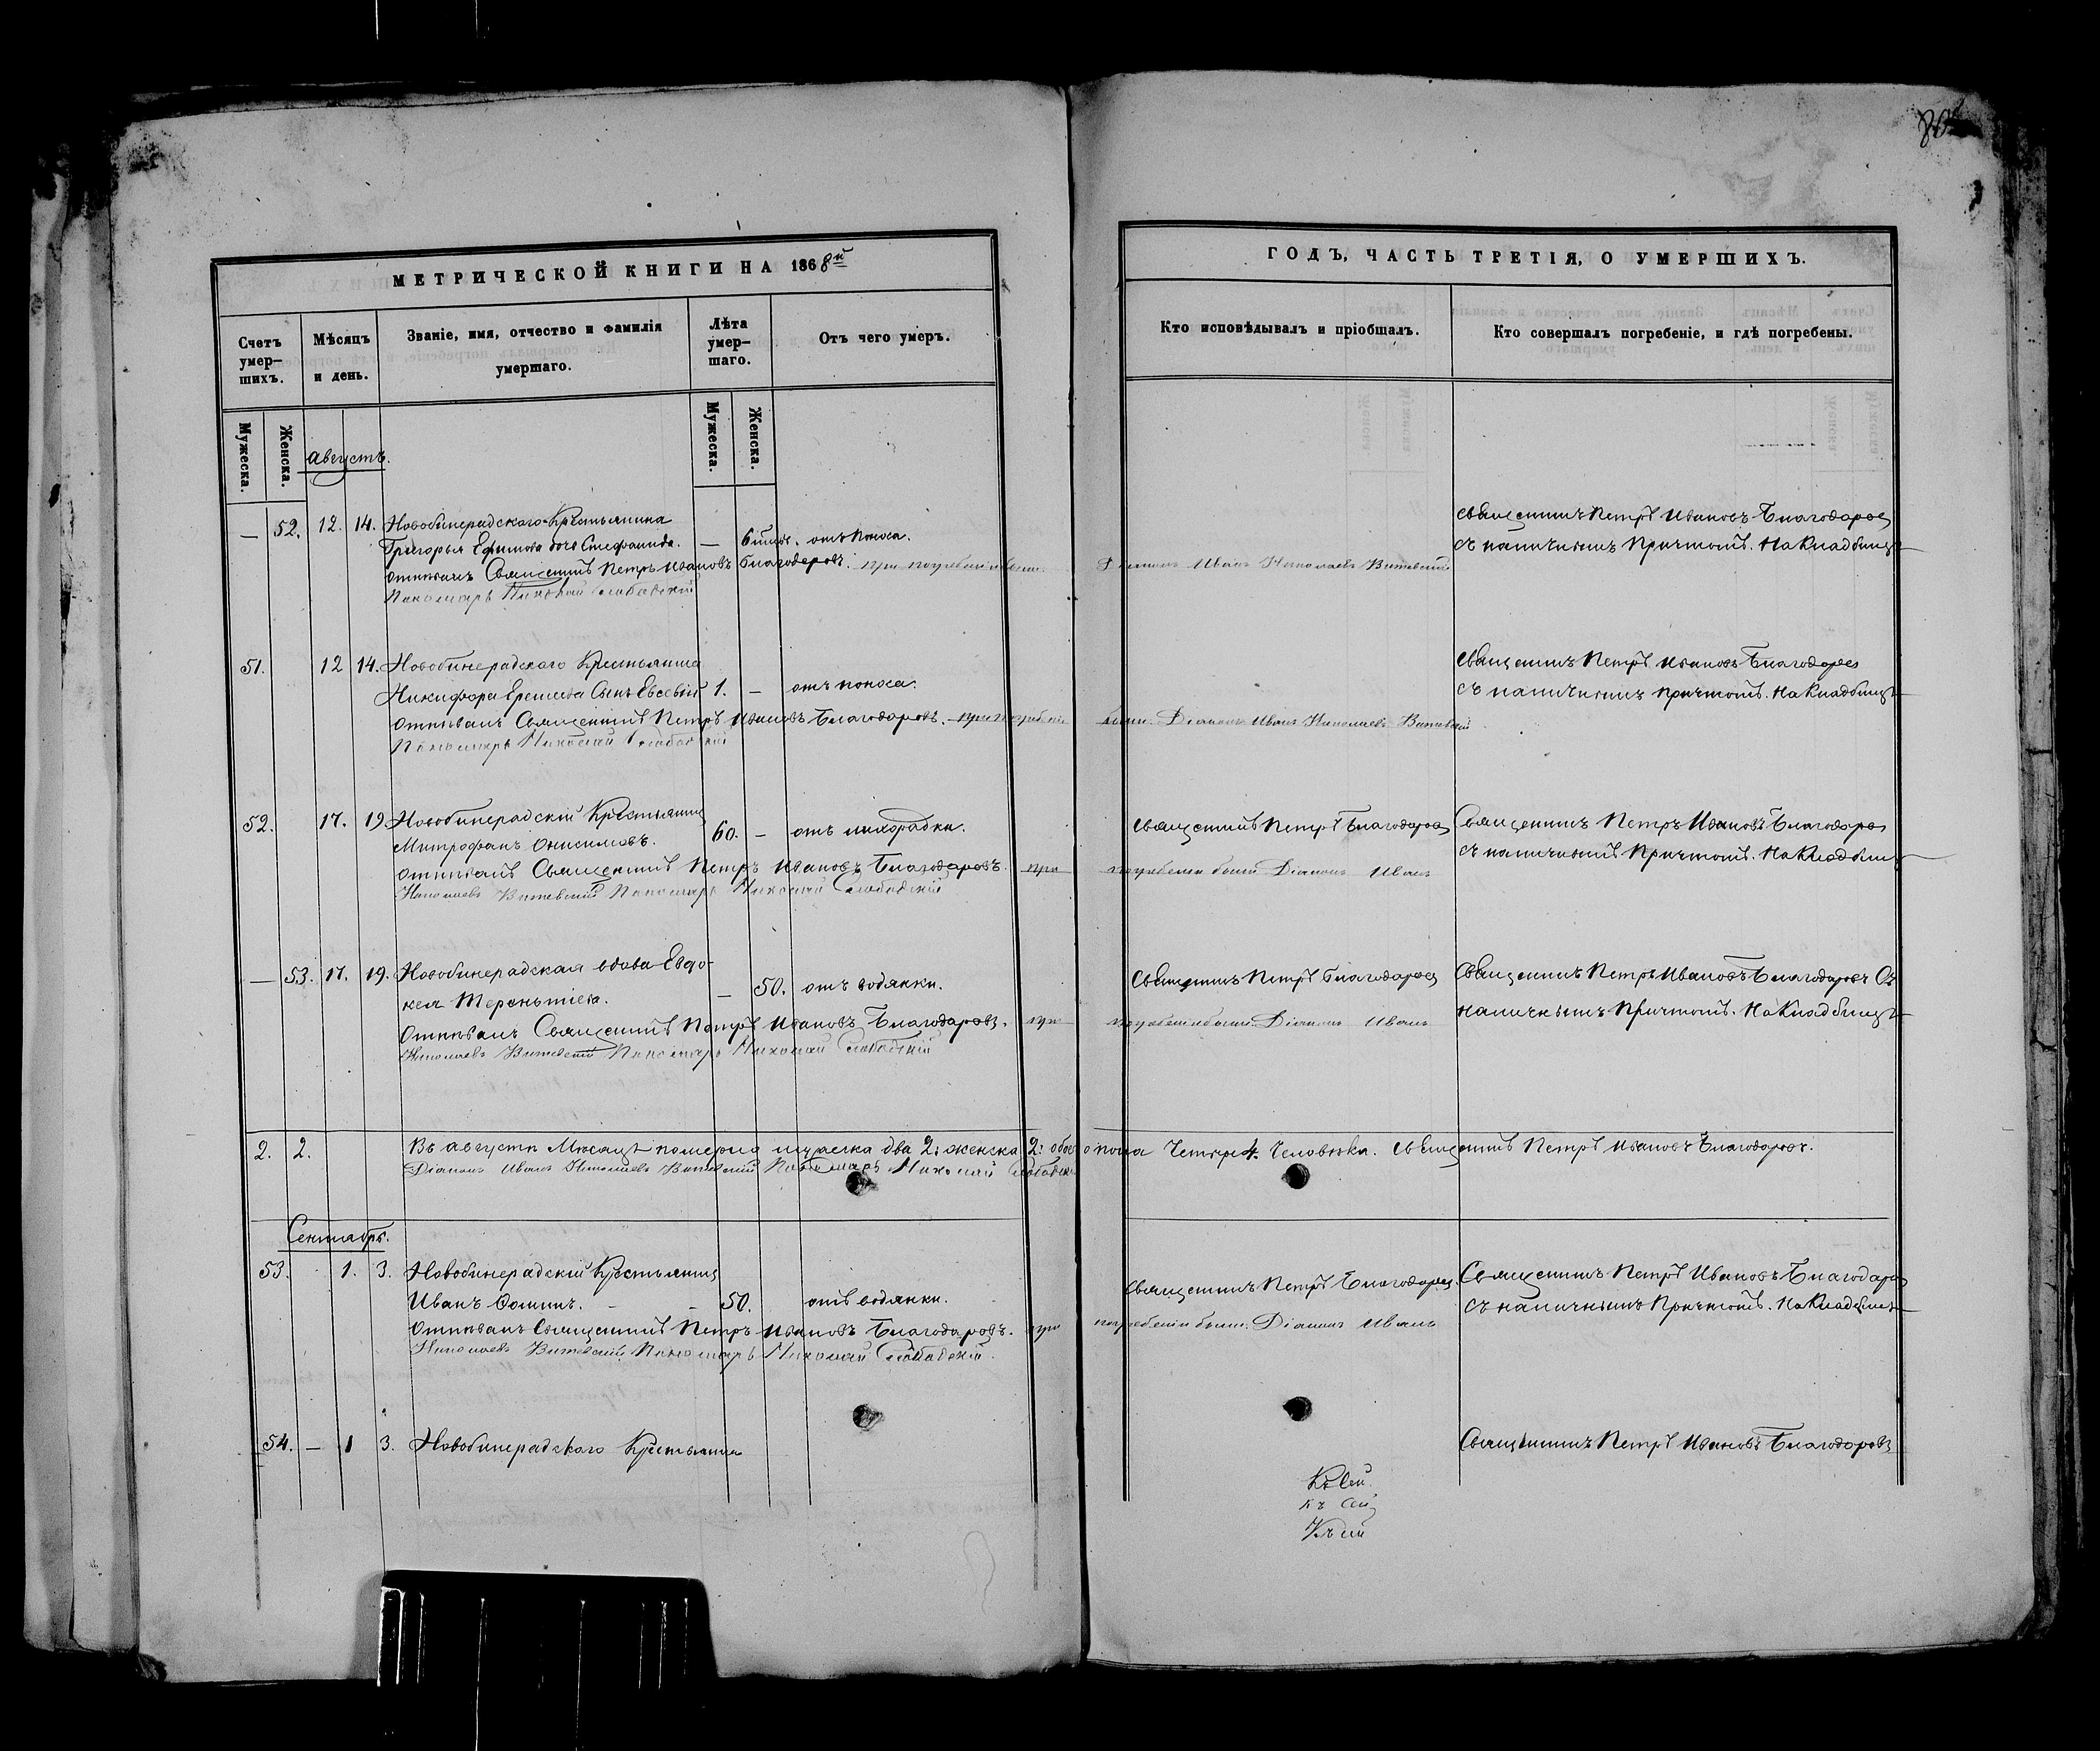 80
МЕТРИЧЕСКОЙ КНИГИ НА 1868й
Счетъ умер–шихъ.
Мѣсяцъ и день.
Званіе, имя, отчество и фамилія умершаго.
Лѣта умер–шаго.
Отъ чего умеръ.
Мужеска.
Женска.
Мужеска.
Женска.
Августъ.
— 52. 12. 14. Новобинерадскаго Крестьянина
Григорья Ефимова дочь Стефанида. — отъ поноса.
отпѣвалъ Священникъ Петръ Ивановъ Благодаровъ. при погребеніи были
Пономарь Николай Слободскій
51. 12 14. Новобинерадскаго Крестьянина
Никифора Еремеева Сынъ Евсевій 1. — отъ поноса.
отпѣвалъ Священникъ Петръ Ивановъ Благодаровъ. при погребеніи
Пономарь Николай Слободскій
52. 17. 19 Новобинерадскій Крестьянинъ
Митрофанъ Онисимовъ. 60. — отъ лихорадки.
отпѣвалъ Священникъ Петръ Ивановъ Благодаровъ. при
Николаевъ Витевскій Пономарь Николай Слободскій
— 53. 17. 19. Новобинерадская вдова Евдо-
кея Терентьева. — 50. отъ водянки.
Отпѣвалъ Священникъ Петръ Ивановъ Благодаровъ. при
Николаевъ Витевскій Пономарь Николай Слободскій
2. 2. Въ августѣ Мѣсяцѣ померло мужеска два 2: женска 2: обоего
Діаконъ Иванъ Николаевъ Витевскій Пономарь Николай Слободскій
Сентябрь.
53. 1. 3. Новобинерадскій Крестьянинъ
Иванъ Ѳоминъ. — — 50. отъ водянки.
Отпѣвалъ Священникъ Петръ Ивановъ Благодаровъ. при
Николаевъ Витевскій Пономарь Николай Слободскій.
54. — 1 3. Новобинерадскаго Крестьянина
ГОДЪ, ЧАСТЬ ТРЕТІЯ, О УМЕРШИХЪ.
Кто исповѣдывалъ и пріобщалъ.
Кто совершалъ погребеніе, и гдѣ погребены.
Священникъ Петръ Ивановъ Благодаровъ
съ наличнымъ Причтомъ. На Кладбищѣ
Діаконъ Иванъ Николаевъ Витевскій
Священникъ Петръ Ивановъ Благодаровъ
съ наличнымъ причтомъ. На Кладбищѣ
были. Діаконъ Иванъ Николаевъ Витевскій
Священникъ Петръ Благодаровъ Священникъ Петръ Ивановъ Благодаровъ
съ наличнымъ Причтомъ. На Кладбищѣ
погребеніи были Діаконъ Иванъ
Священникъ Петръ Благодаровъ Священникъ Петръ Ивановъ Благодаровъ Съ
наличнымъ Причтомъ. На Кладбищѣ
погребеніи были. Діаконъ Иванъ
пола Четыре 4. Человѣка. Священникъ Петръ Ивановъ Благодаровъ.
Священникъ Петръ Благодаровъ. Священникъ Петръ Ивановъ Благодаровъ
Съ наличнымъ Причтомъ. На Кладбищѣ
погребеніи были. Діаконъ Иванъ
Священникъ Петръ Ивановъ Благодаровъ